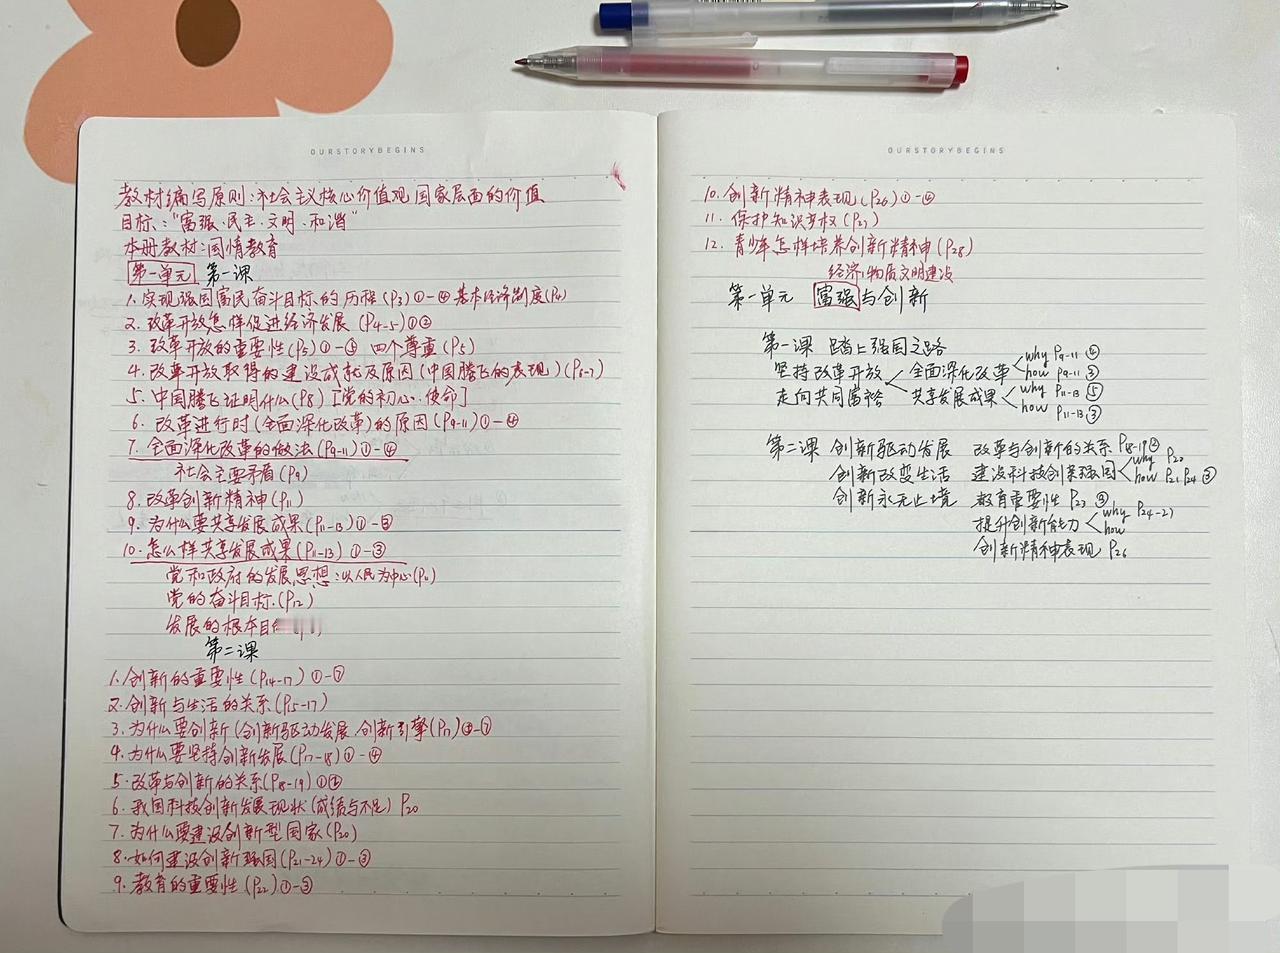 OURSTORYBEGINS
教材编写原则:社会主义核心价值观国家层面的价值
目标:"富强·民主·文明·和谐"
本册教材:国情教育
第一单元 第一课
1. 实现强国富民奋斗目标的历程(P3)①-④ 基本经济制度
2. 改革开放怎样促进经济发展(P4-5)①②
3. 改革开放的重要性(P5)①-⑤ 四个尊重(P5)
4. 改革开放取得的建设成就及原因(中国腾飞的表现)(P6-7)
5. 中国腾飞证明什么(P8)[党的初心、使命]
6. 改革进行时(全面深化改革)的原因(P9-11)①-④
7. 全面深化改革的做法(P9-11)①-④
社会主要矛盾(P9)
8. 改革创新精神(P11)
9. 为什么要共享发展成果(P11-13)①-⑤
10. 怎么样共享发展成果(P11-13)①-③
党和政府的发展思想:以人民为中心
党的奋斗目标.(P12)
发展的根本目
第二课
1. 创新的重要性(P14-17)①-⑦
2. 创新与生活的关系(P15-17)
3. 为什么要创新(创新驱动发展.创新引擎(P17)④-⑦
4. 为什么要坚持创新发展(P17-18)①-④
5. 改革与创新的关系(P18-19)①②
6. 我国科技创新发展现状(成绩与不足) P20
7. 为什么要建设创新型国家(P20)
8. 如何建设创新强国(P21-24)①-③
9. 教育的重要性(P22)①-③
OURSTORYBEGINS
10. 创新精神表现(P26)①-④
11. 保护知识产权(P27)
12. 青少年怎样培养创新精神(P28)
经济:物质文明建设
第一单元 富强与创新
第一课 踏上强国之路
坚持改革开放 全面深化改革 why P9-11 ④ how P9-11 ③
走向共同富裕 共享发展成果 why P11-13 ⑤ how P11-13 ③
第二课 创新驱动发展 改革与创新的关系 P18-19 ②
创新改变生活 建设科技创新强国 why P20 how P21 P24 ③
创新永无止境 教育重要性 P23 ③
提升创新能力 why P24-27 how
创新精神表现 P26